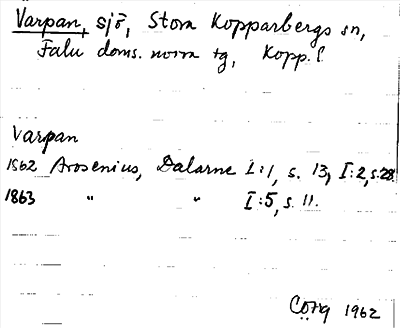 Varpan, sjö, Stora Kopparbergs sn,
Falu doms. norra tg, Kopp. l.
Varpan
1862 Arosenius, Dalarne I:1, s. 13, I:2, s. 28
1863 " " I:5, s. 11.
1962